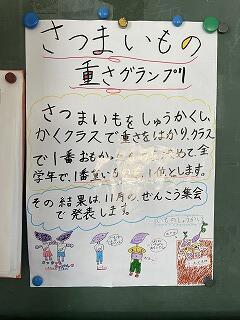 さつまいもの
重さグランプリ
さつまいもをしゅうかくし、
かくクラスで重さをはかり、クラス
で1番おもかった 決めて、全
学年で、1番重い 1位とします。
その結果は、11月の、ぜんこう集会
で発表します。